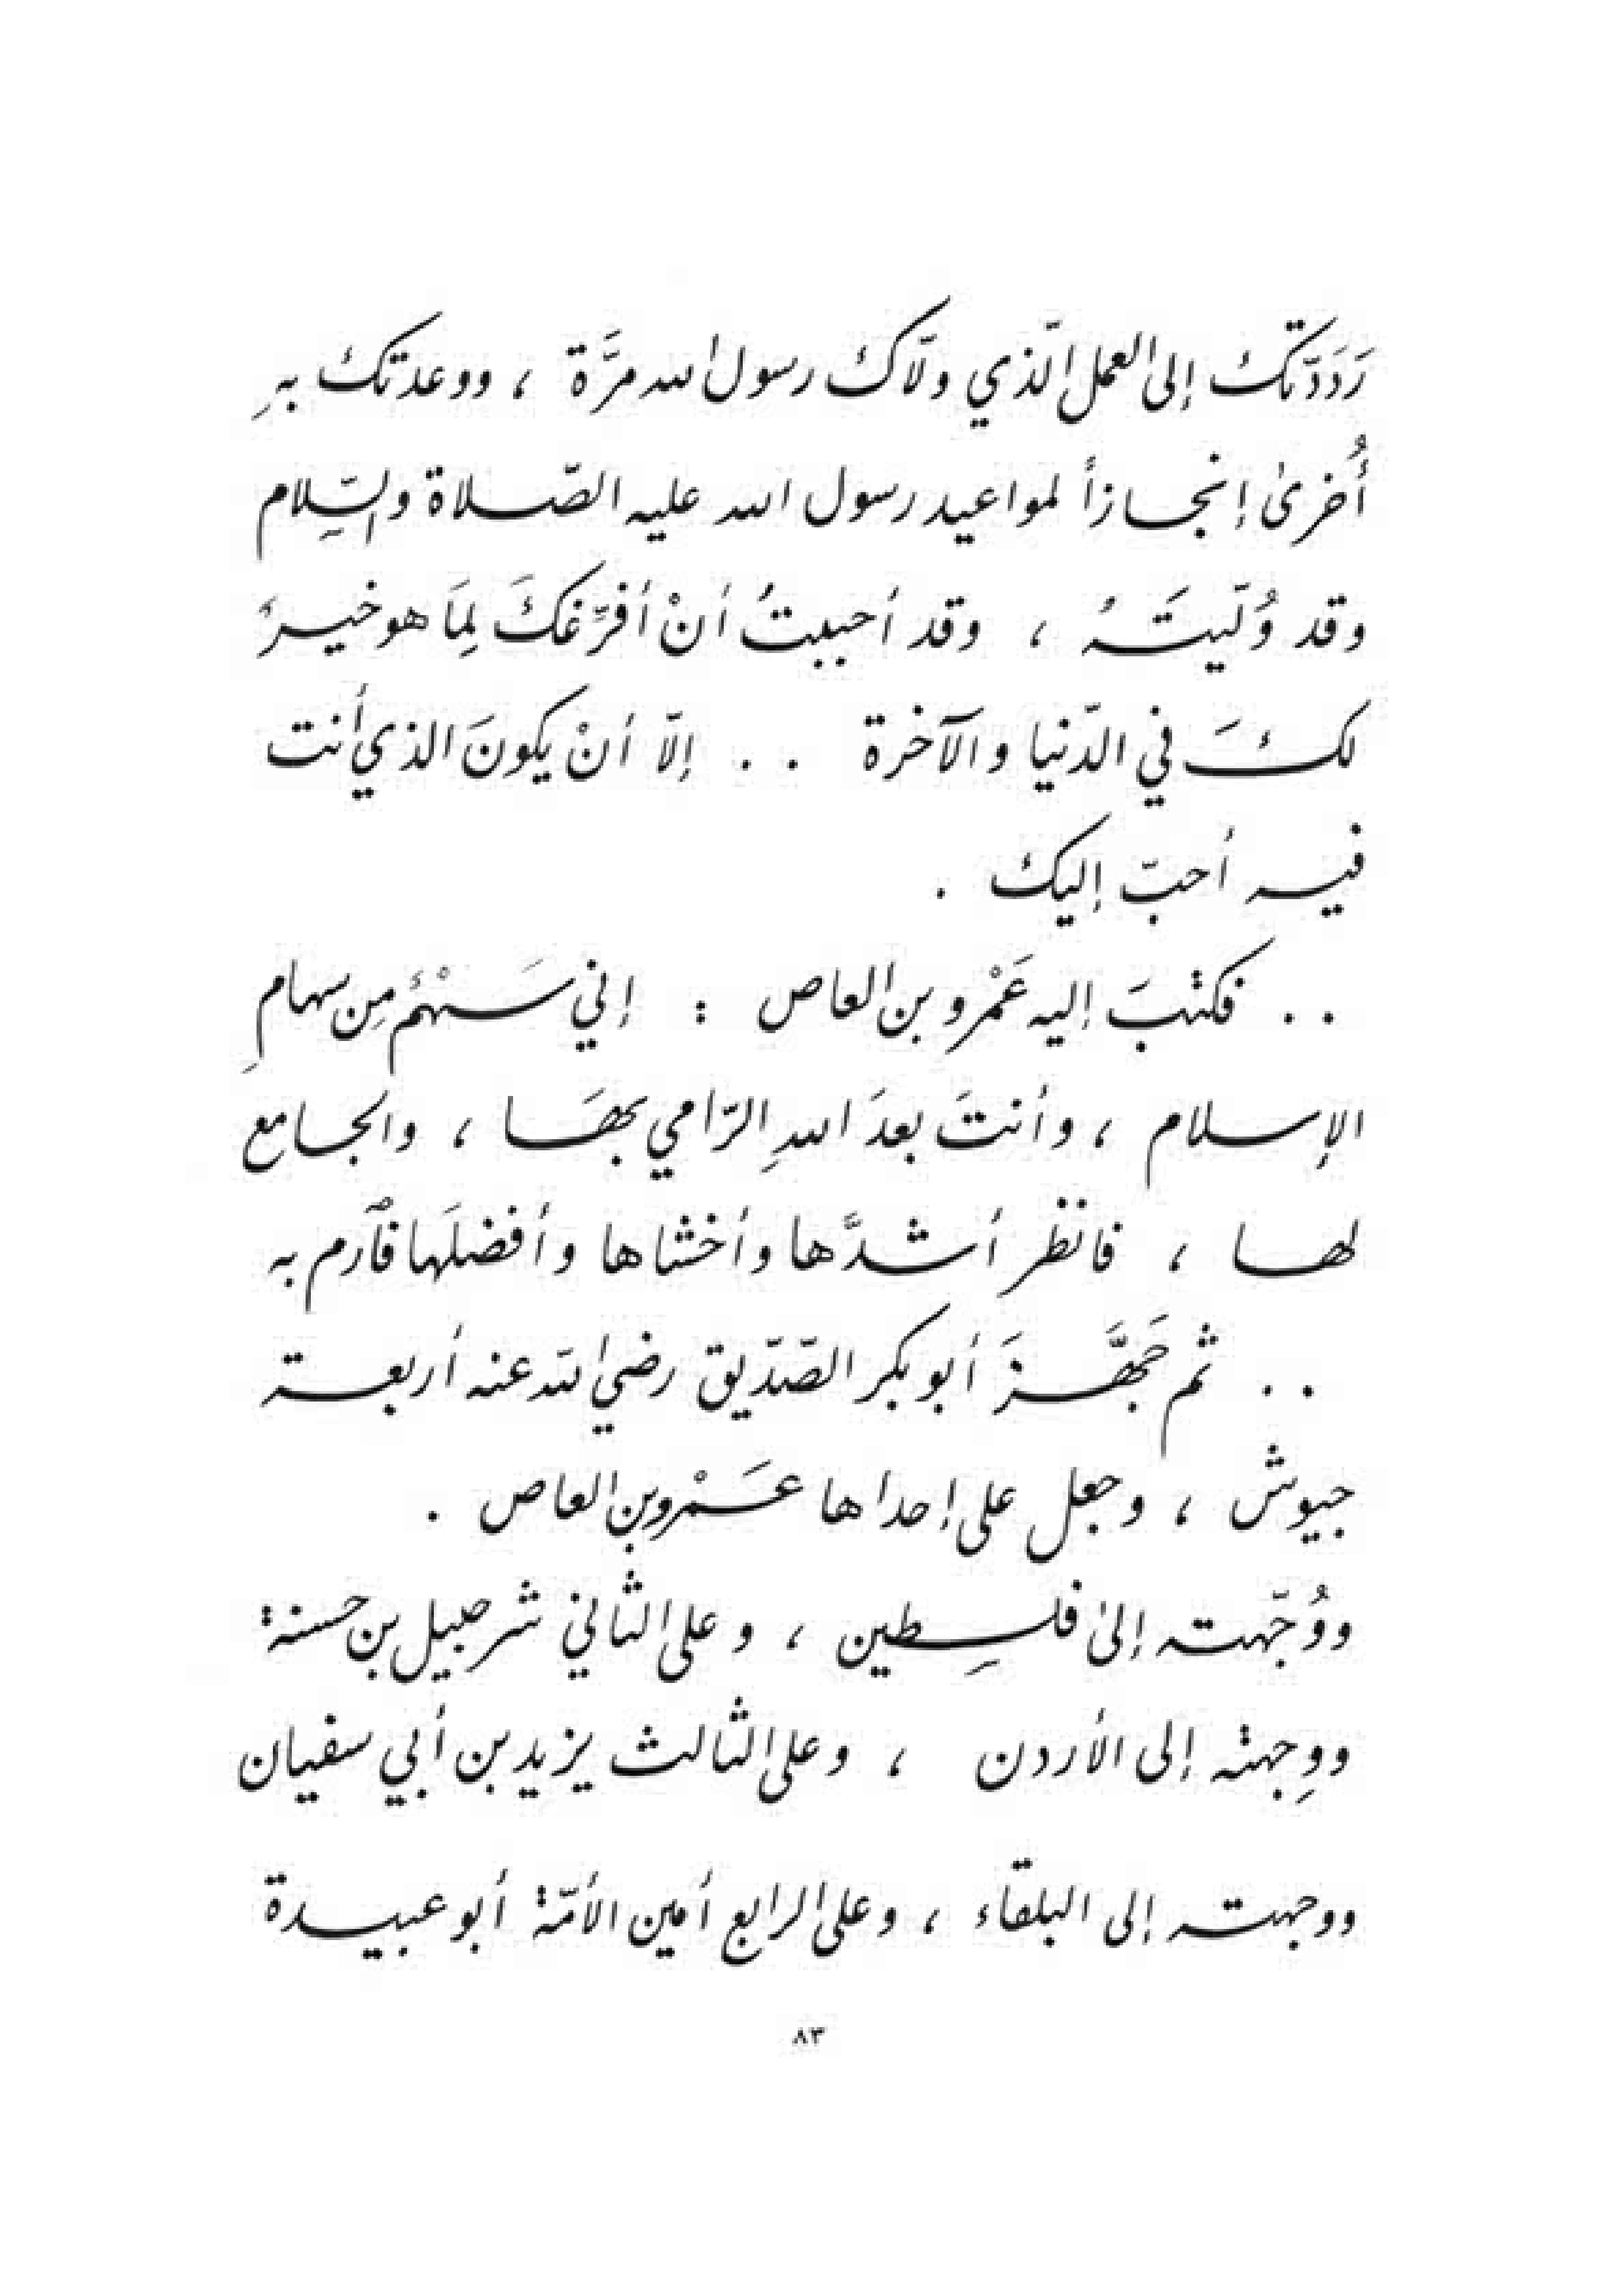 رَدَدَّتُكَ إلى العمل الّذي ولّاك رسول الله مرَّة ، ووعدتك بهِ
أُخرىٰ إنجازاً لمواعيد رسول الله عليه الصّلاة والسِّلام
وقد وُلّيتَهُ ، وقد أحببتُ أنْ أفرِّغكَ لِمَا هو خيرٌ
لكَ في الدّنيا والآخرة . . إلّا أنْ يكونَ الذي أنت
فيه أحبّ إليك .
. . فكتبَ إليه عَمْرو بن العاص : إني سَهْمٌ مِن سهامِ
الإسلام ، وأنتَ بعدَ اللهِ الرّامي بهَا ، والجامع
لها ، فانظر أشدَّها وأخشاها وأفضلَها فٱرم به
. . ثم جَهَّزَ أبو بكر الصّدّيق رضي الله عنه أربعة
جيوش ، وجعل على إحداها عَمْرو بن العاص .
ووُجّهته إلىٰ فلسِطين ، وعلى الثاني شرحبيل بن حسنة
ووِجهته إلى الأردن ، وعلى الثالث يزيد بن أبي سفيان
ووجهته إلى البلقاء ، وعلى الرابع أمين الأمّة أبو عبيدة
٨٣